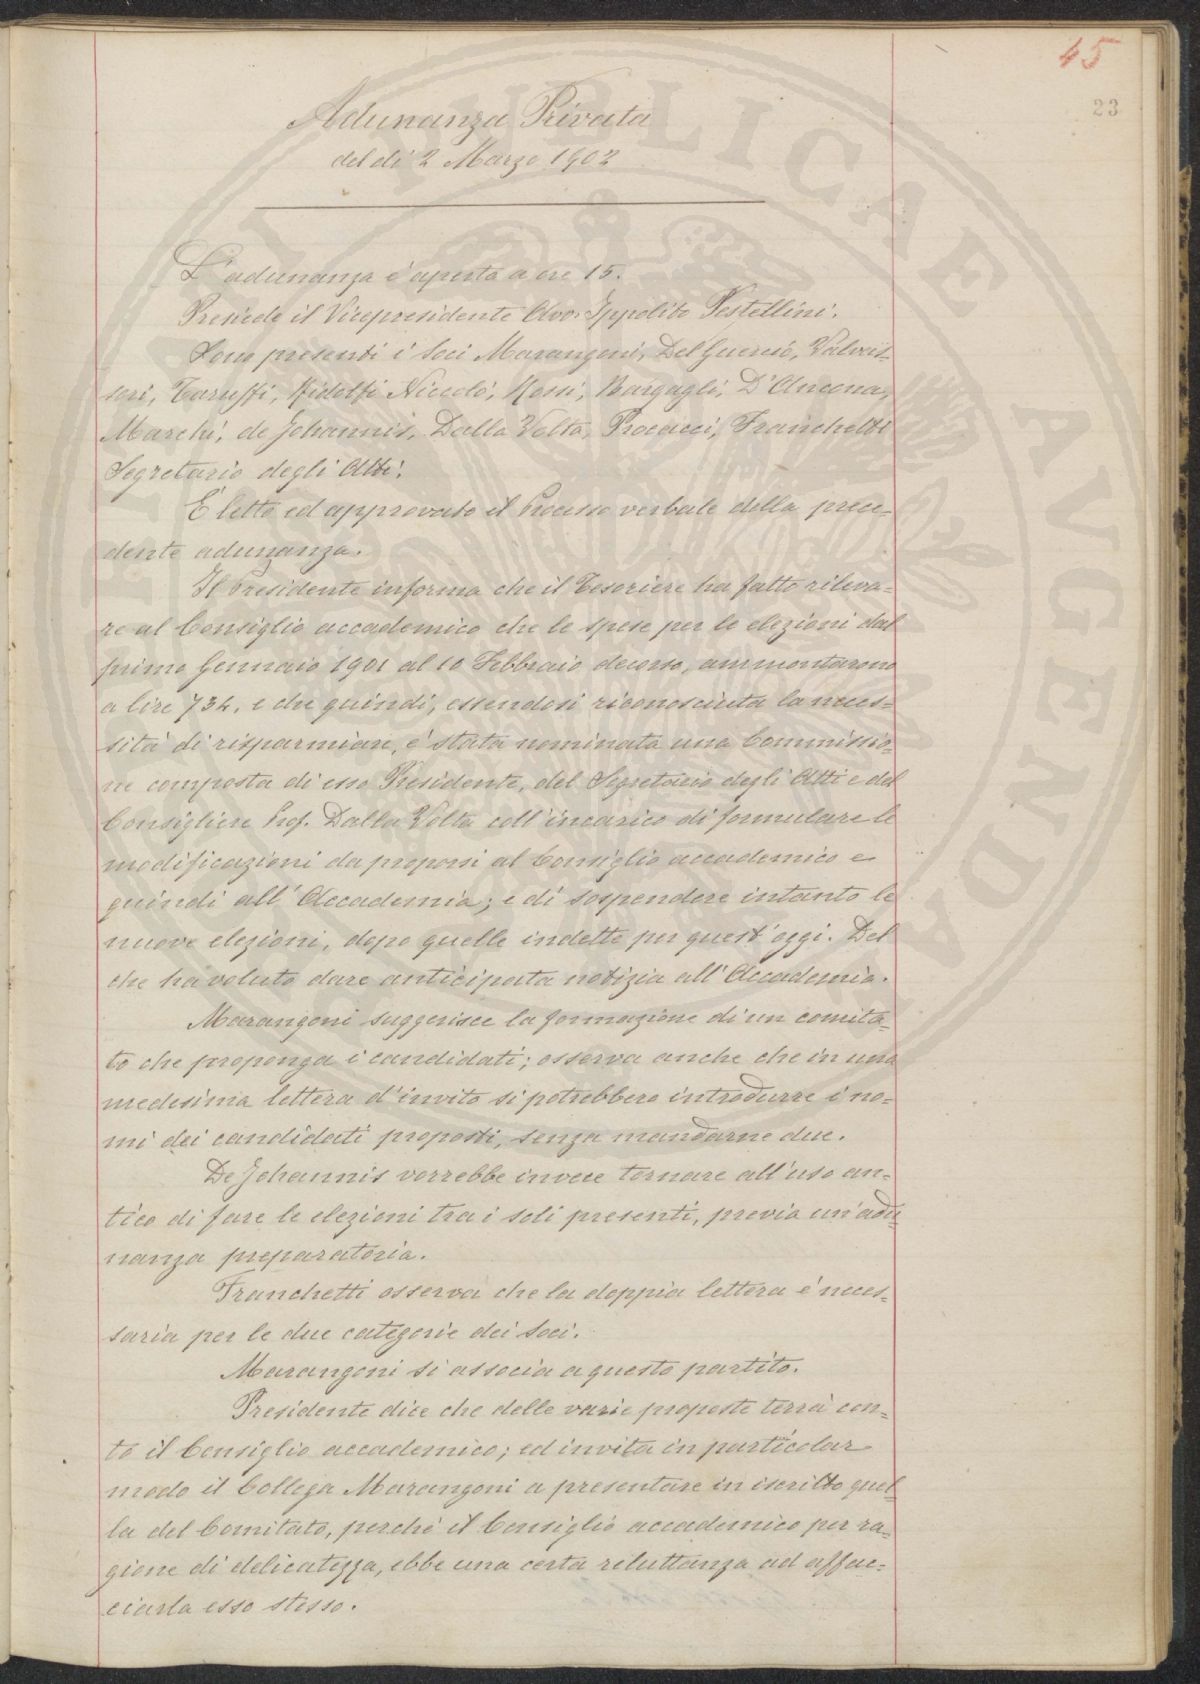 45
23
Adunanza Privata
del dì 2 Marzo 1902
L'adunanza è aperta a ore 15.
Presiede il Vicepresidente Avv. Ippolito Pestellini.
Sono presenti i Soci Marangoni, Del Guercio, Valvas=
sori, Taruffi, Ridolfi Niccolò, Rossi, Bargagli, D'Ancona,
Marchi, de Johannis, Dalla Volta, Procacci, Franchetti
Segretario degli Atti.
È letto ed approvato il Processo verbale della prece=
dente adunanza.
Il Presidente informa che il Tesoriere ha fatto rileva=
re al Consiglio accademico che le spese per le elezioni dal
primo Gennaio 1901 al 10 Febbraio decorso, ammontarono
a lire 734. e che quindi, essendosi riconosciuta la neces=
sità di risparmiare, è stata nominata una Commissio=
ne composta di esso Presidente, del Segretario degli Atti e del
Consigliere Prof. Dalla Volta coll'incarico di formulare le
modificazioni da proporsi al Consiglio accademico e
quindi all'Accademia; e di sospendere intanto le
nuove elezioni, dopo quelle indette per quest'oggi. Del
che ha voluto dare anticipata notizia all'Accademia.
Marangoni suggerisce la formazione di un comita=
to che proponga i candidati; osserva anche che in una
medesima lettera d'invito si potrebbero introdurre i no=
mi dei candidati proposti, senza mandarne due.
De Johannis vorrebbe invece tornare all'uso an=
tico di fare le elezioni tra i soli presenti, previa un'adu=
nanza preparatoria.
Franchetti osserva che la doppia lettera è neces=
saria per le due categorie dei Soci.
Marangoni si associa a questo partito.
Presidente dice che delle varie proposte terrà con=
to il Consiglio accademico; ed invita in particolar
modo il Collega Marangoni a presentare in iscritto quel=
la del Comitato, perchè il Consiglio accademico per ra=
gione di delicatezza, ebbe una certa riluttanza ad affac=
ciarla esso stesso.
PUBLICAE AVGENDAE